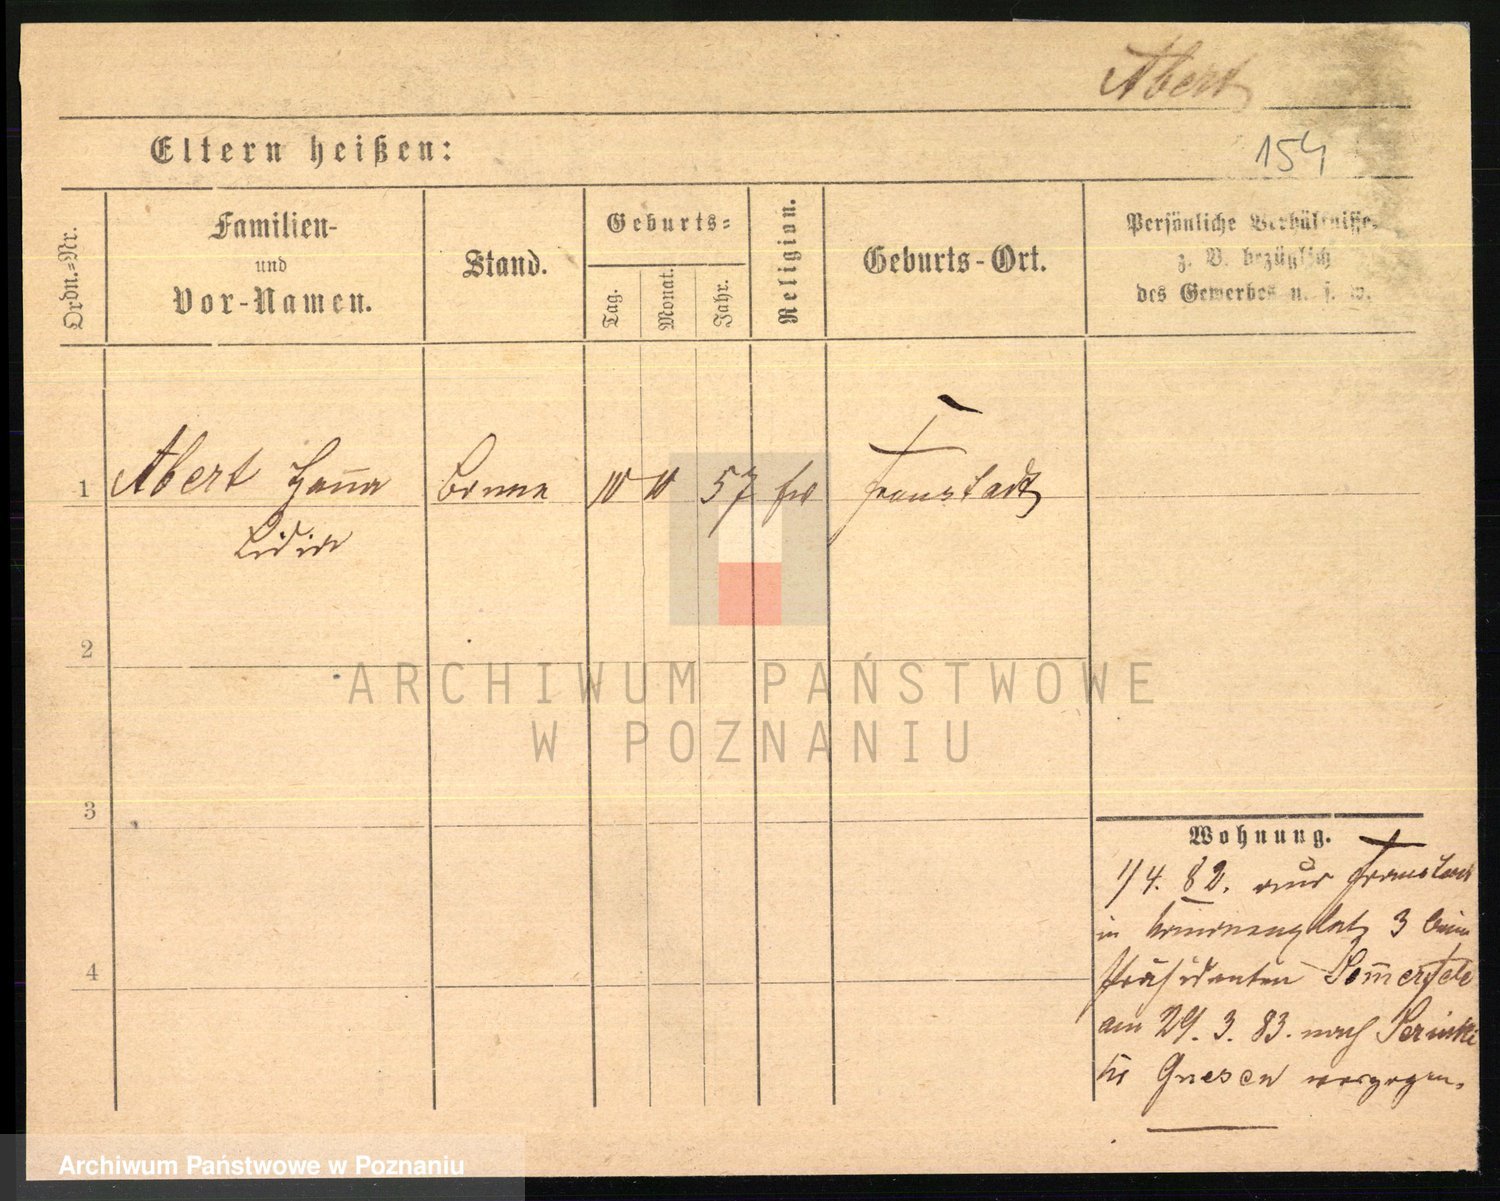 Abert
154
Eltern heißen:
Ordn.=Nr.
Familien-
und
Vor-Namen.
Stand.
Geburts=
Tag.
Monat.
Jahr.
Religion.
Geburts-Ort.
Persönliche Verhältnisse
z. B. bezüglich
des Gewerbes u. s. w.
1 Abert Han̄a Bonne 10 10 57 Fraustadt
Lidia
2
ARCHIWUM PAŃSTWOWE
W POZNANIU
3
Wohnung.
1/4. 82. aus Fraustadt
in 3 beim
Präsidenten Som̄erfeld
am 29. 3. 83. nach
Gnesen verzogen.
4
Archiwum Państwowe w Poznaniu